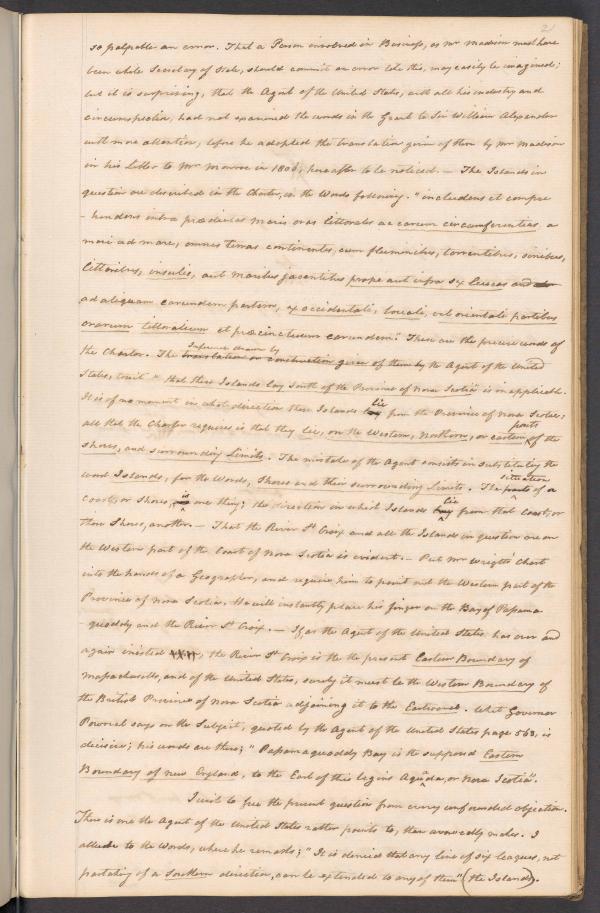 21
so palpable an error. That a Person involved in Business, as Mr Madison must have
been while Secretary of State, should commit an error like this, may easily be imagined;
but it is surprising, that the Agent of the United States, with all his industry and
circumspection, had not examined the words in the Grant to Sir William Alexander
with more attention, before he adopted the translation given of them by Mr Madison
in his Letter to Mr Monroe in 1806, hereafter to be noticed. — The Islands in
question are described in the Charter, in the Words following. "includens et compre
-hendens intra prædictas maris oras littorales ac earum circumferentias a
mari ad mare, omnes terras continentes, cum fluminibus, torrentibus, sinibus,
littoribus, insulis, aut maribus jacentibus prope aut infra sex Leucas
ad aliquam earundem partem, ex occidentali, boreali, vel orientali partibus
orarum littoralium et præcinctuum earundem." These are the precise words of
the Charter. The Inference drawn by translation or construction given of them by the Agent of the United
States, to wit "that these Islands lay South of the Province of Nova Scotia" is inapplicable.
It is of no moment in what direction these Islands lie from the Province of Nova Scotia;
all that the Charter requires is that they lie, on the Western, Northern, or eastern parts of the
Shores, and surrounding Limits. The mistake of the Agent consists in substituting the
word Islands, for the Words, Shores and their surrounding Limits. The situation of a
Coast, or Shores, is one thing; the direction in which Islands lie from that Coast, or
those Shores, another. — That the River St Croix and all the Islands in question are on
the Western part of the Coast of Nova Scotia is evident. — Put Mr Wright's Chart
into the hands of a Geographer, and require him to point out the Western part of the
Province of Nova Scotia. He will instantly place his finger on the Bay of Passama
-quoddy and the River St Croix. — If, as the Agent of the United States has over and
again insisted, the River St Croix is the present Eastern Boundary of
Massachusetts, and of the United States, surely it must be the Western Boundary of
the British Province of Nova Scotia adjoining it to the Eastward. What Governor
Pownal says on the Subject, quoted by the Agent of the United States page 563, is
decisive; his words are these; "Passamaquoddy Bay is the supposed Eastern
Boundary of New England, to the East of this begins Aquada, or Nova Scotia".
I wish to free the present question from every unfounded objection.
There is one the Agent of the United States rather points to, than avowedly makes. I
allude to the Words, where he remarks; "It is denied that any line of six leagues, not
partaking of a Southern direction, can be extended to any of them" (the Islands).